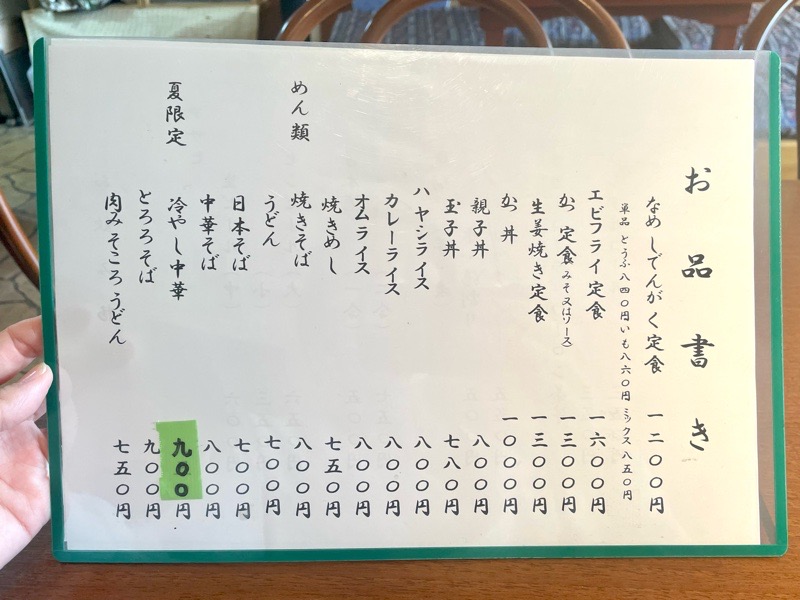 お品書き
なめしでんがく定食 一二〇〇円
単品 とうふ八四〇円 いも八六〇円 ミックス八五〇円
エビフライ定食 一六〇〇円
かつ定食(みそ又はソース) 一三〇〇円
生姜焼き定食 一三〇〇円
かつ丼 一〇〇〇円
親子丼 八〇〇円
玉子丼 七八〇円
ハヤシライス 八〇〇円
カレーライス 八〇〇円
オムライス 八〇〇円
焼きめし 七五〇円
めん類
焼きそば 八〇〇円
うどん 七〇〇円
日本そば 七〇〇円
中華そば 八〇〇円
夏限定
冷やし中華 九〇〇円
とろろそば 九〇〇円
肉みそころうどん 七五〇円